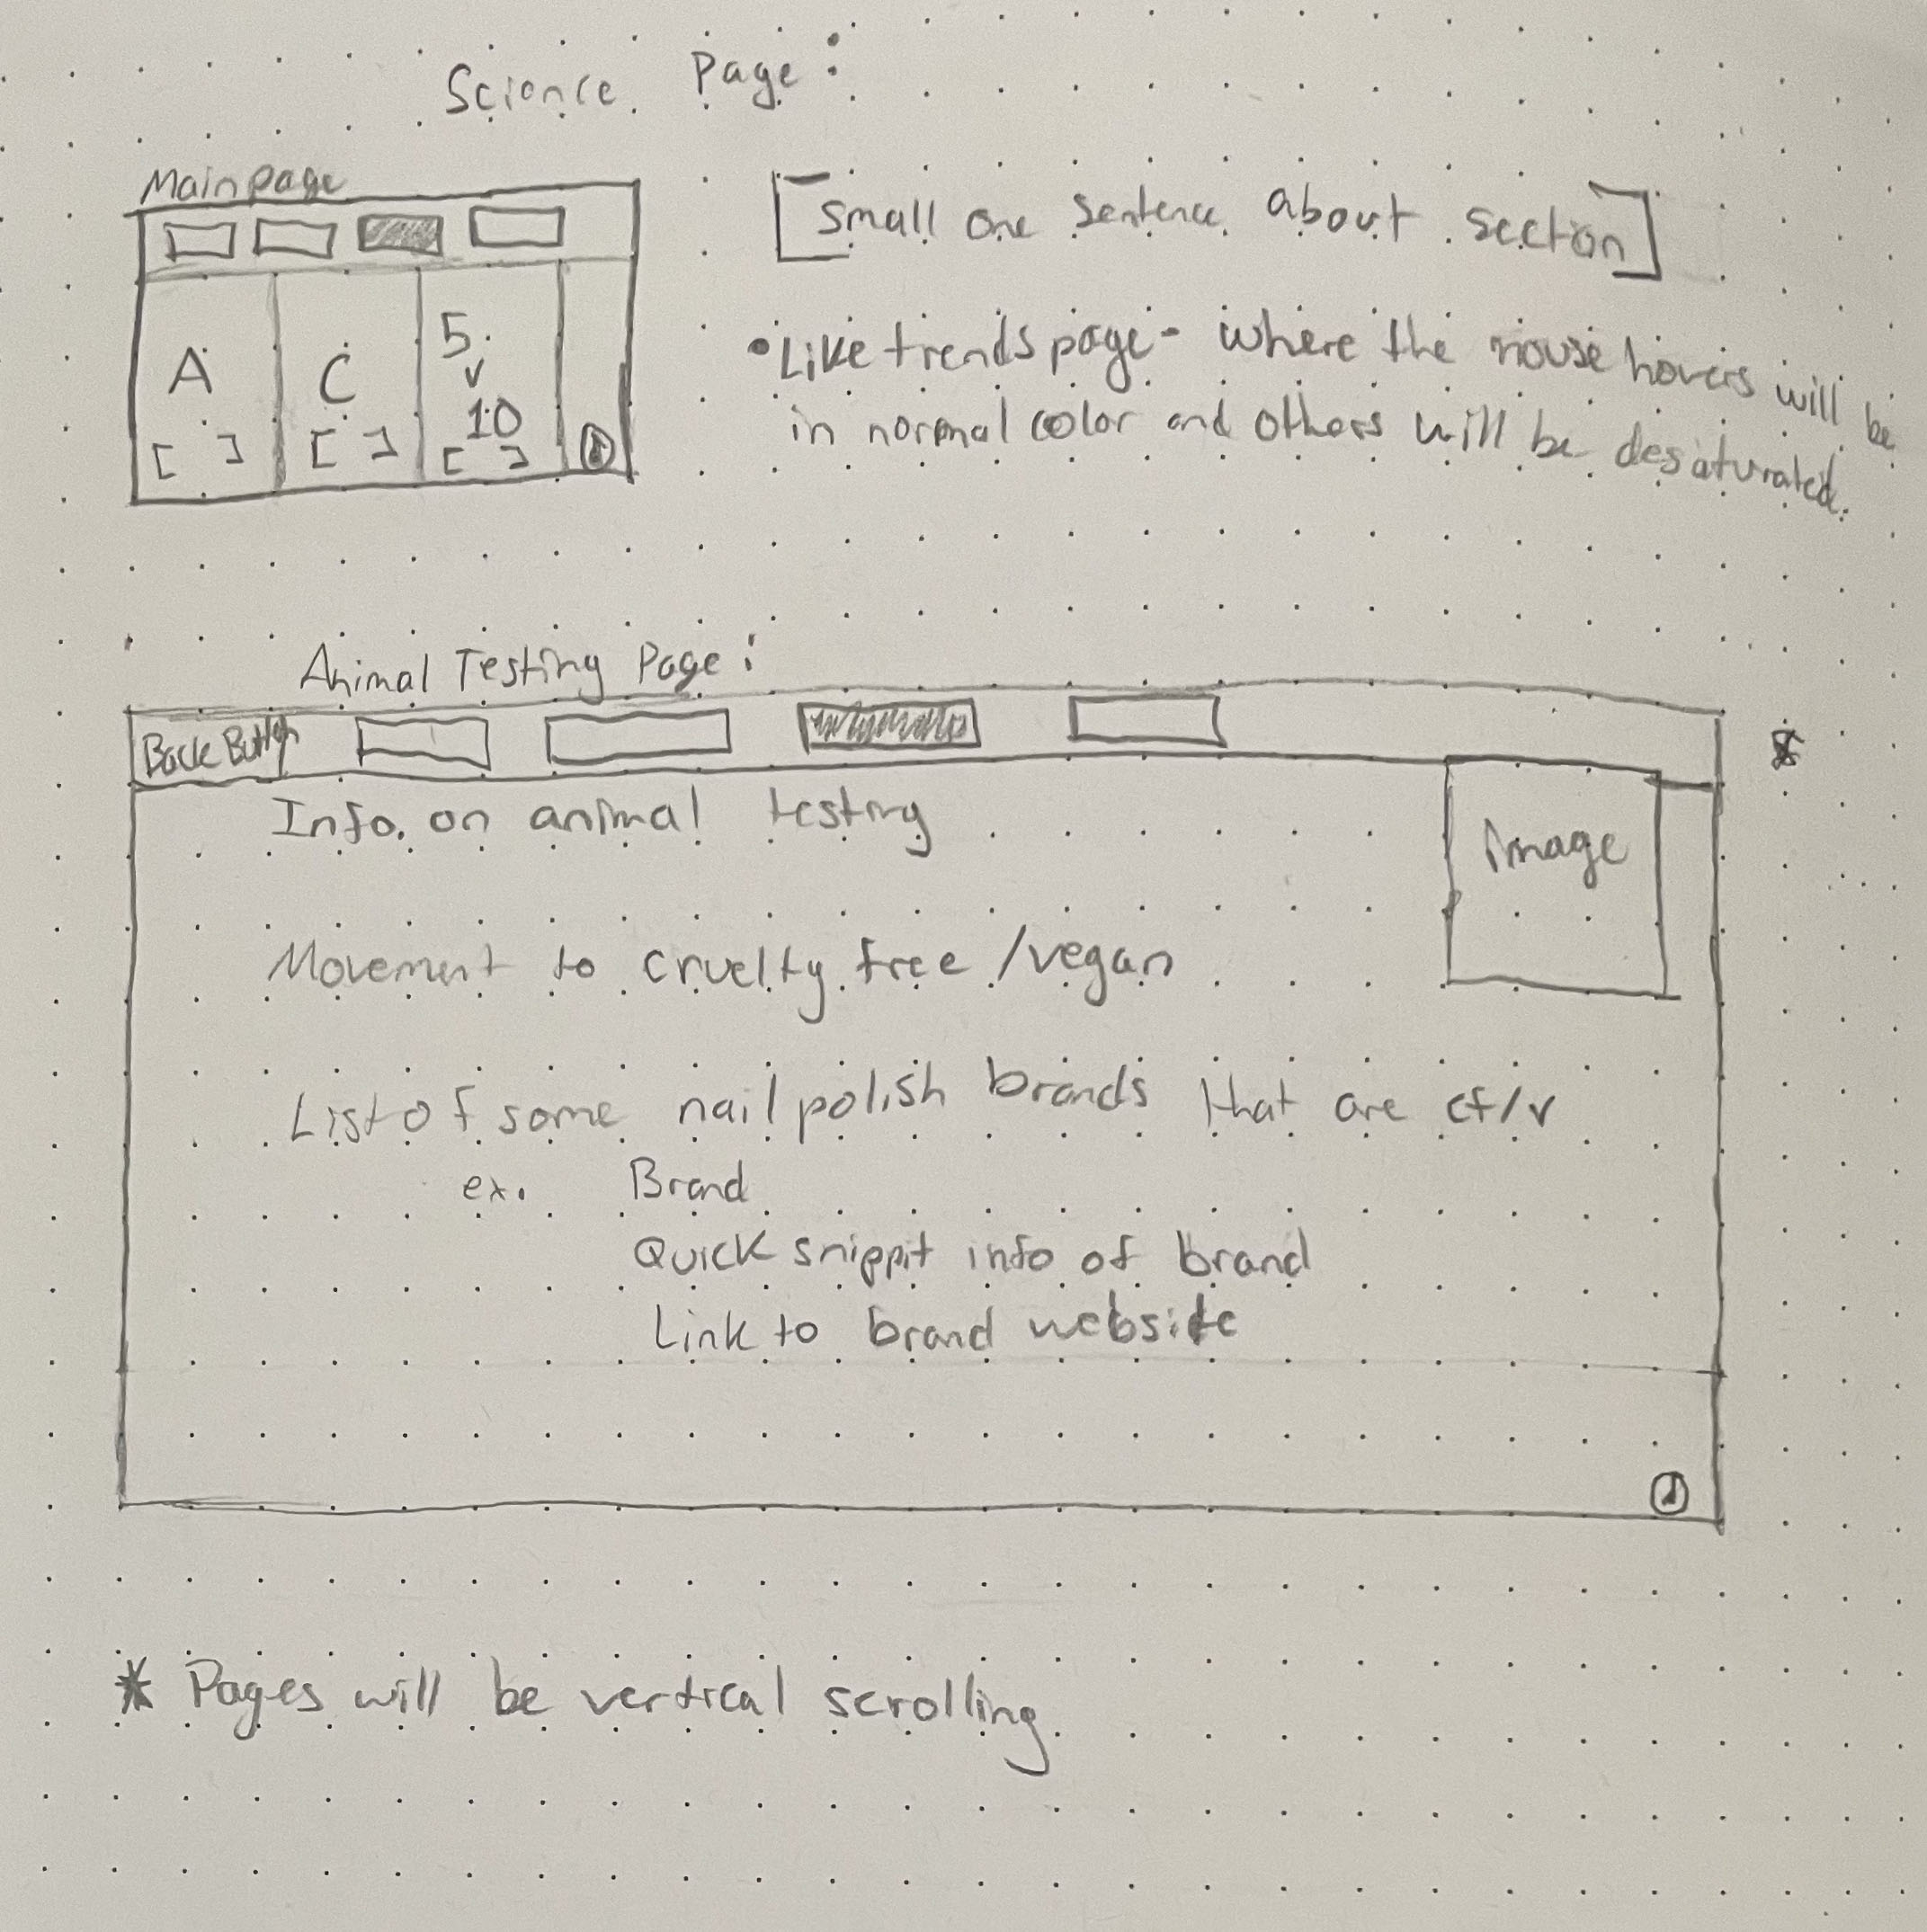 Science Page:
Main page
[small one sentence about section]
A
C
5
v
10
[ ]
[ ]
[ ]
• Like trends page - where the mouse hovers will be
in normal color and others will be desaturated.
Animal Testing Page:
Back Button
Info. on animal testing
image
Movement to cruelty free /vegan
List of some nail polish brands that are cf/v
ex. Brand
Quick snippit info of brand
Link to brand website
* Pages will be vertical scrolling